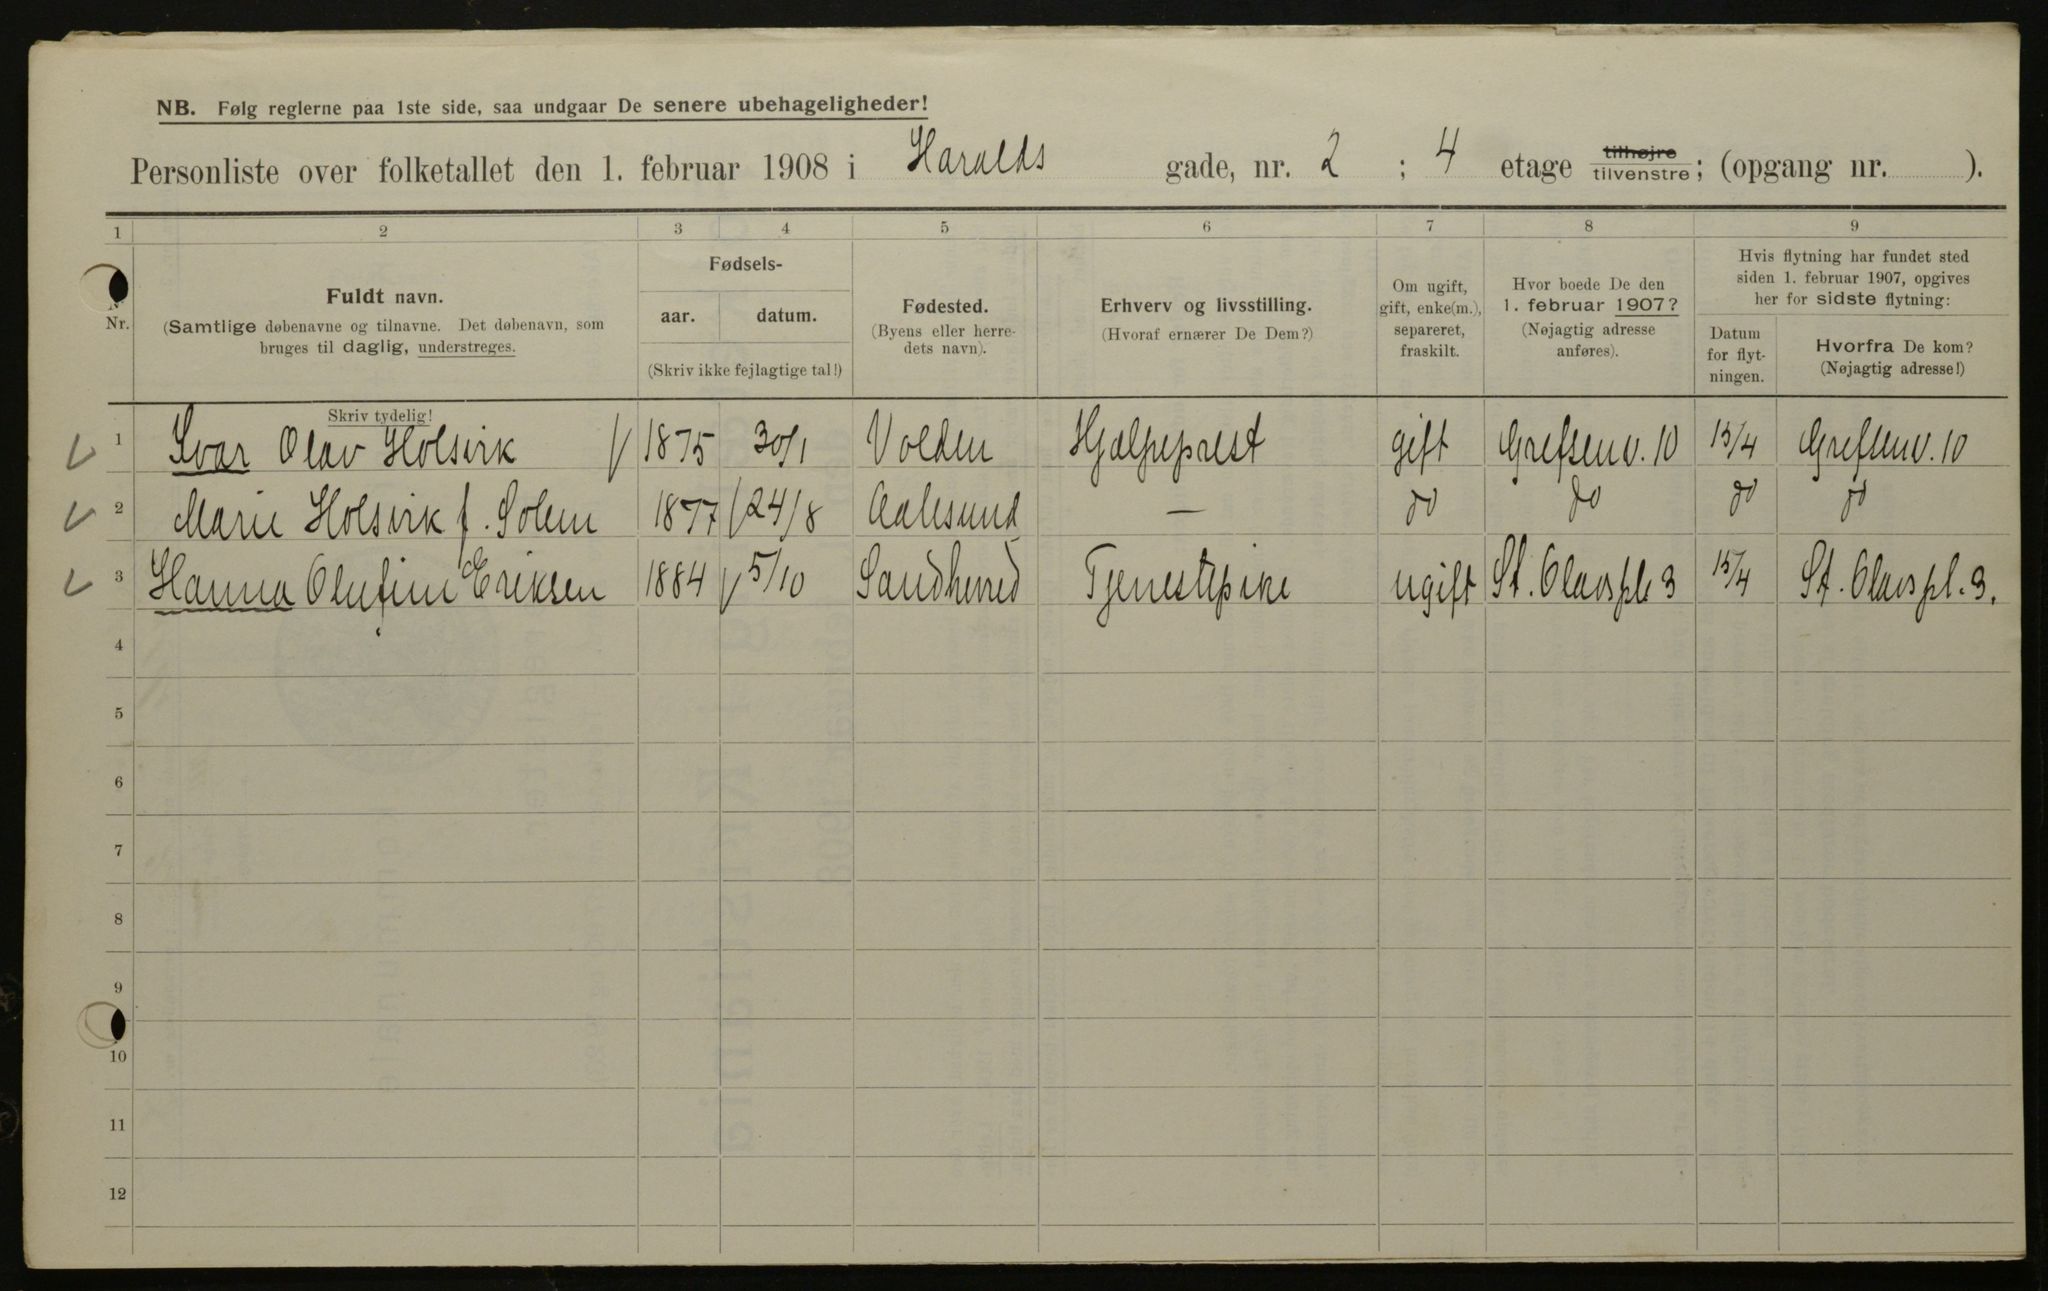 NB. Følg reglerne paa 1ste side, saa undgaar De senere ubehageligheder!
Personliste over folketallet den 1. februar 1908 i Haralds gade, nr. 2 ; 4 etage tilhøjre tilvenstre; (opgang nr. ).
1 2 3 4 5 6 7 8 9
Nr.
Fuldt navn.
(Samtlige døbenavne og tilnavne. Det døbenavn, som
bruges til daglig, understreges.
Skriv tydelig!
Fødsels-
aar. datum.
(Skriv ikke fejlagtige tal!)
Fødested.
(Byens eller herre-
dets navn).
Erhverv og livsstilling.
(Hvoraf ernærer De Dem?)
Om ugift,
gift, enke(m.),
separeret,
fraskilt.
Hvor boede De den
1. februar 1907?
(Nøjagtig adresse
anføres).
Hvis flytning har fundet sted
siden 1. februar 1907, opgives
her for sidste flytning:
Datum
for flyt-
ningen.
Hvorfra De kom?
(Nøjagtig adresse!)
1 Ivar Olav Holsvik 1875 30/1 Volden Hjælpeprest gift Grefsenv. 10 15/4 Grefsenv. 10
2 Marie Holsvik f. Solem 1877 24/8 Aalesund — do do do do
3 Hanna Olufine Eriksen 1884 5/10 Sandherred Tjenestepike ugift St. Olavspl. 3 15/4 St. Olavspl. 3.
4
5
6
7
8
9
10
11
12